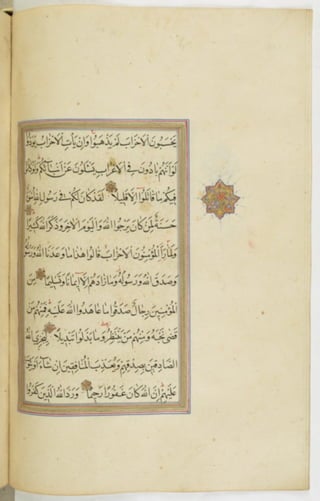 يَحْسَبُونَ الْأَحْزَابَ لَمْ يَذْهَبُوا وَإِنْ يَأْتِ الْأَحْزَابُ يَوَدُّوا
لَوْ أَنَّهُمْ بَادُونَ فِي الْأَعْرَابِ يَسْأَلُونَ عَنْ أَنْبَائِكُمْ وَلَوْ كَانُوا
فِيكُمْ مَا قَاتَلُوا إِلَّا قَلِيلًا لَقَدْ كَانَ لَكُمْ فِي رَسُولِ اللَّهِ أُسْوَةٌ
حَسَنَةٌ لِمَنْ كَانَ يَرْجُوا اللَّهَ وَالْيَوْمَ الْآخِرَ وَذَكَرَ اللَّهَ كَثِيرًا
وَلَمَّا رَأَى الْمُؤْمِنُونَ الْأَحْزَابَ قَالُوا هَذَا مَا وَعَدَنَا اللَّهُ وَرَسُولُهُ
وَصَدَقَ اللَّهُ وَرَسُولُهُ وَمَا زَادَهُمْ إِلَّا إِيمَانًا وَتَسْلِيمًا مِنَ
الْمُؤْمِنِينَ رِجَالٌ صَدَقُوا مَا عَاهَدُوا اللَّهَ عَلَيْهِ فَمِنْهُمْ مَنْ
قَضَى نَحْبَهُ وَمِنْهُمْ مَنْ يَنْتَظِرُ وَمَا بَدَّلُوا تَبْدِيلًا لِيَجْزِيَ اللَّهُ
الصَّادِقِينَ بِصِدْقِهِمْ وَيُعَذِّبَ الْمُنَافِقِينَ إِنْ شَاءَ أَوْ يَتُوبَ
عَلَيْهِمْ إِنَّ اللَّهَ كَانَ غَفُورًا رَحِيمًا وَرَدَّ اللَّهُ الَّذِينَ كَفَرُوا